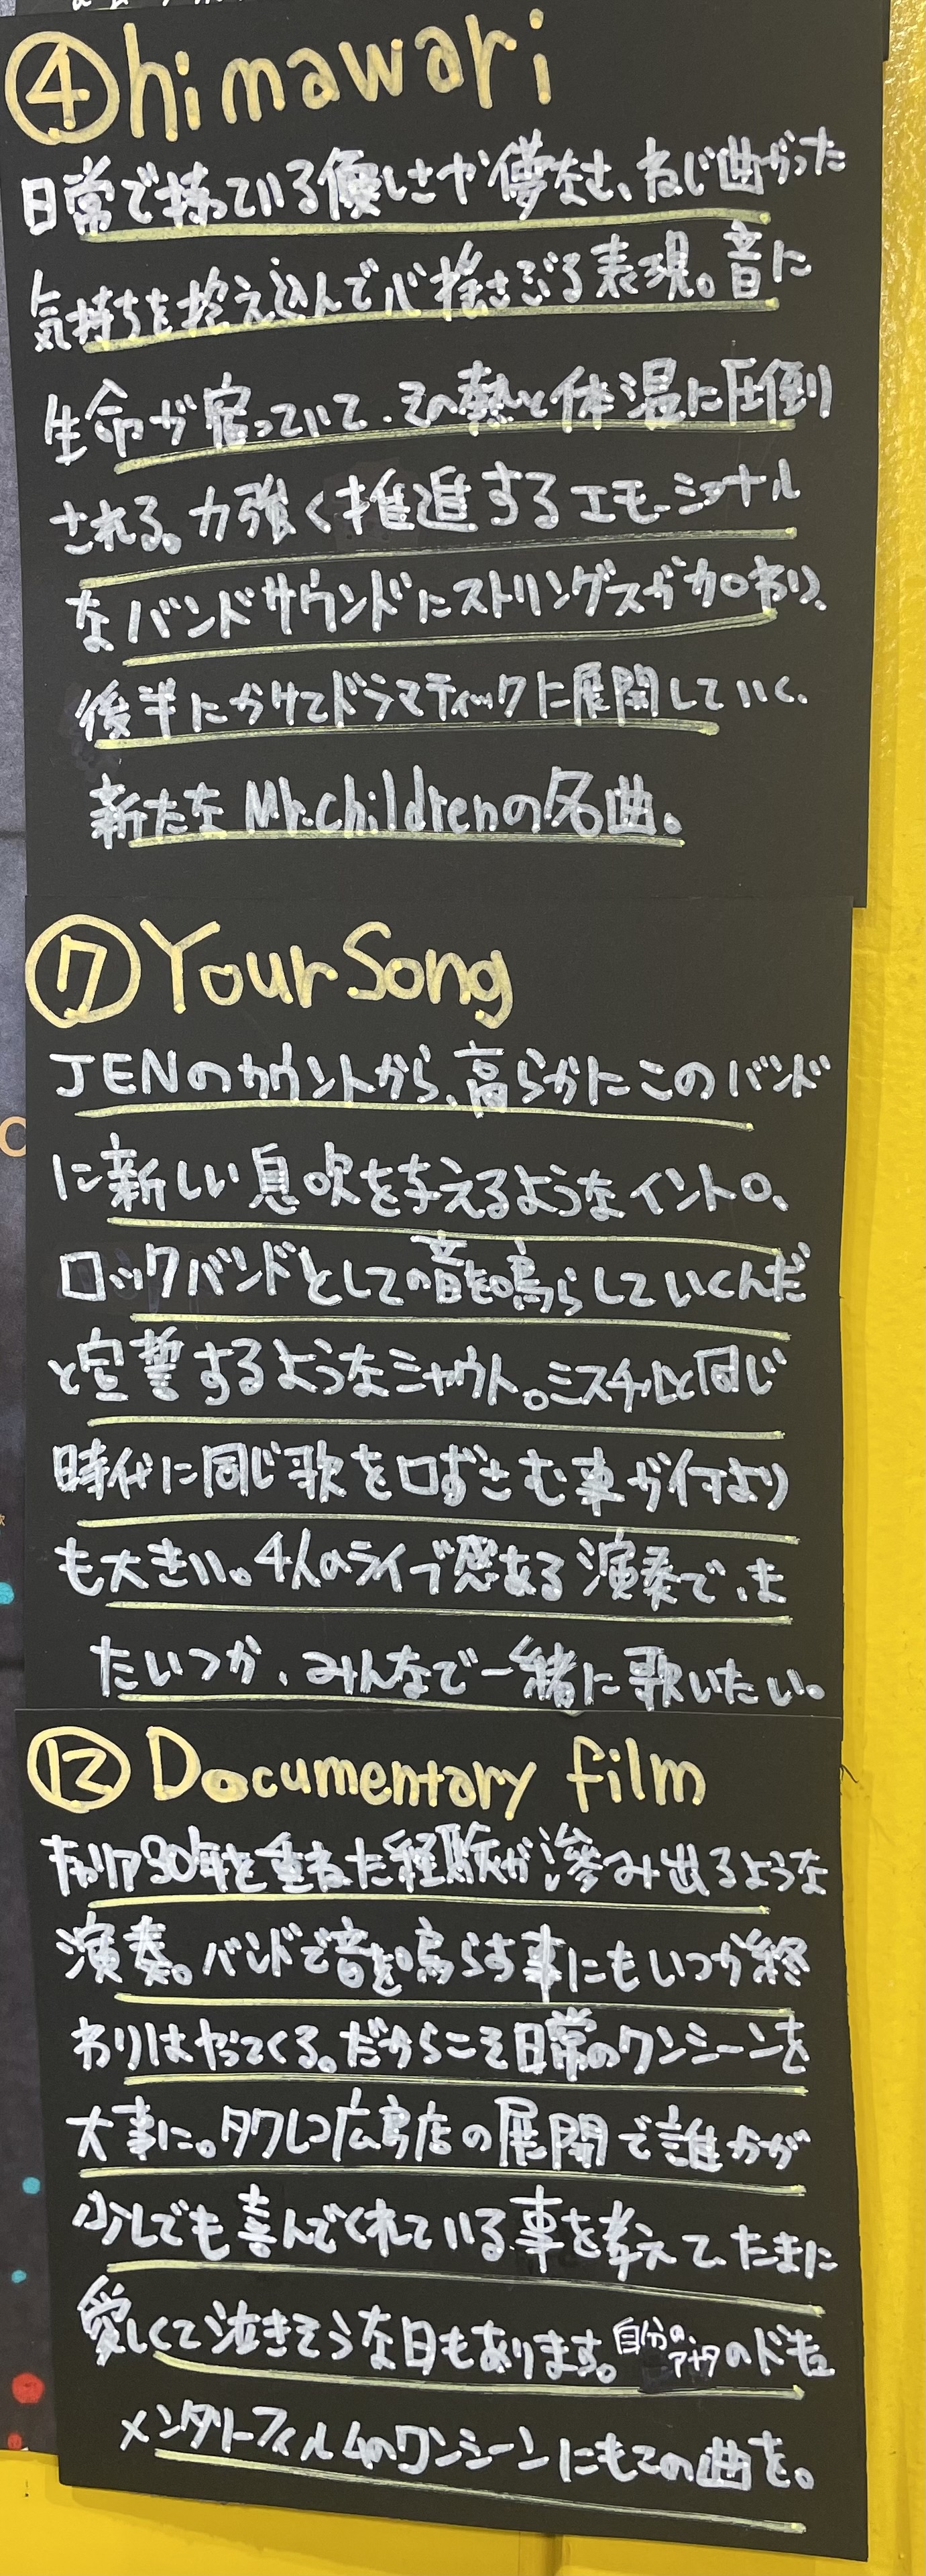 ④himawari
日常で持っている優しさや儚なさ、ねじ曲がった
気持ちを抱え込んで心揺さぶる表現。音に
生命が宿っていて、その熱と体温に圧倒
される。力強く推進するエモーショナル
なバンドサウンドにストリングスが加わり、
後半にかけてドラマティックに展開していく、
新たなMr.childrenの名曲。
⑦Your Song
JENのカウントから、高らかにこのバンド
に新しい息吹を与えるようなイントロ、
ロックバンドとしての音を鳴らしていくんだ
と宣誓するようなシャウト。ミスチルと同じ
時代に同じ歌を口ずさむ事が何より
も大きい。4人のライブ感ある演奏で、ま
たいつか、みんなで一緒に歌いたい。
⑫Documentary film
キャリア30年を重ねた経験が滲み出るような
演奏。バンドで音を鳴らす事にもいつか終
わりはやってくる。だからこそ日常のワンシーンを
大事に。タワレコ広島店の展開で誰かが
少しでも喜んでくれている事を考えて、たまに
愛しくて泣きそうな日もあります。自分の、アナタのドキュ
メンタリーフィルムのワンシーンにもこの曲を。